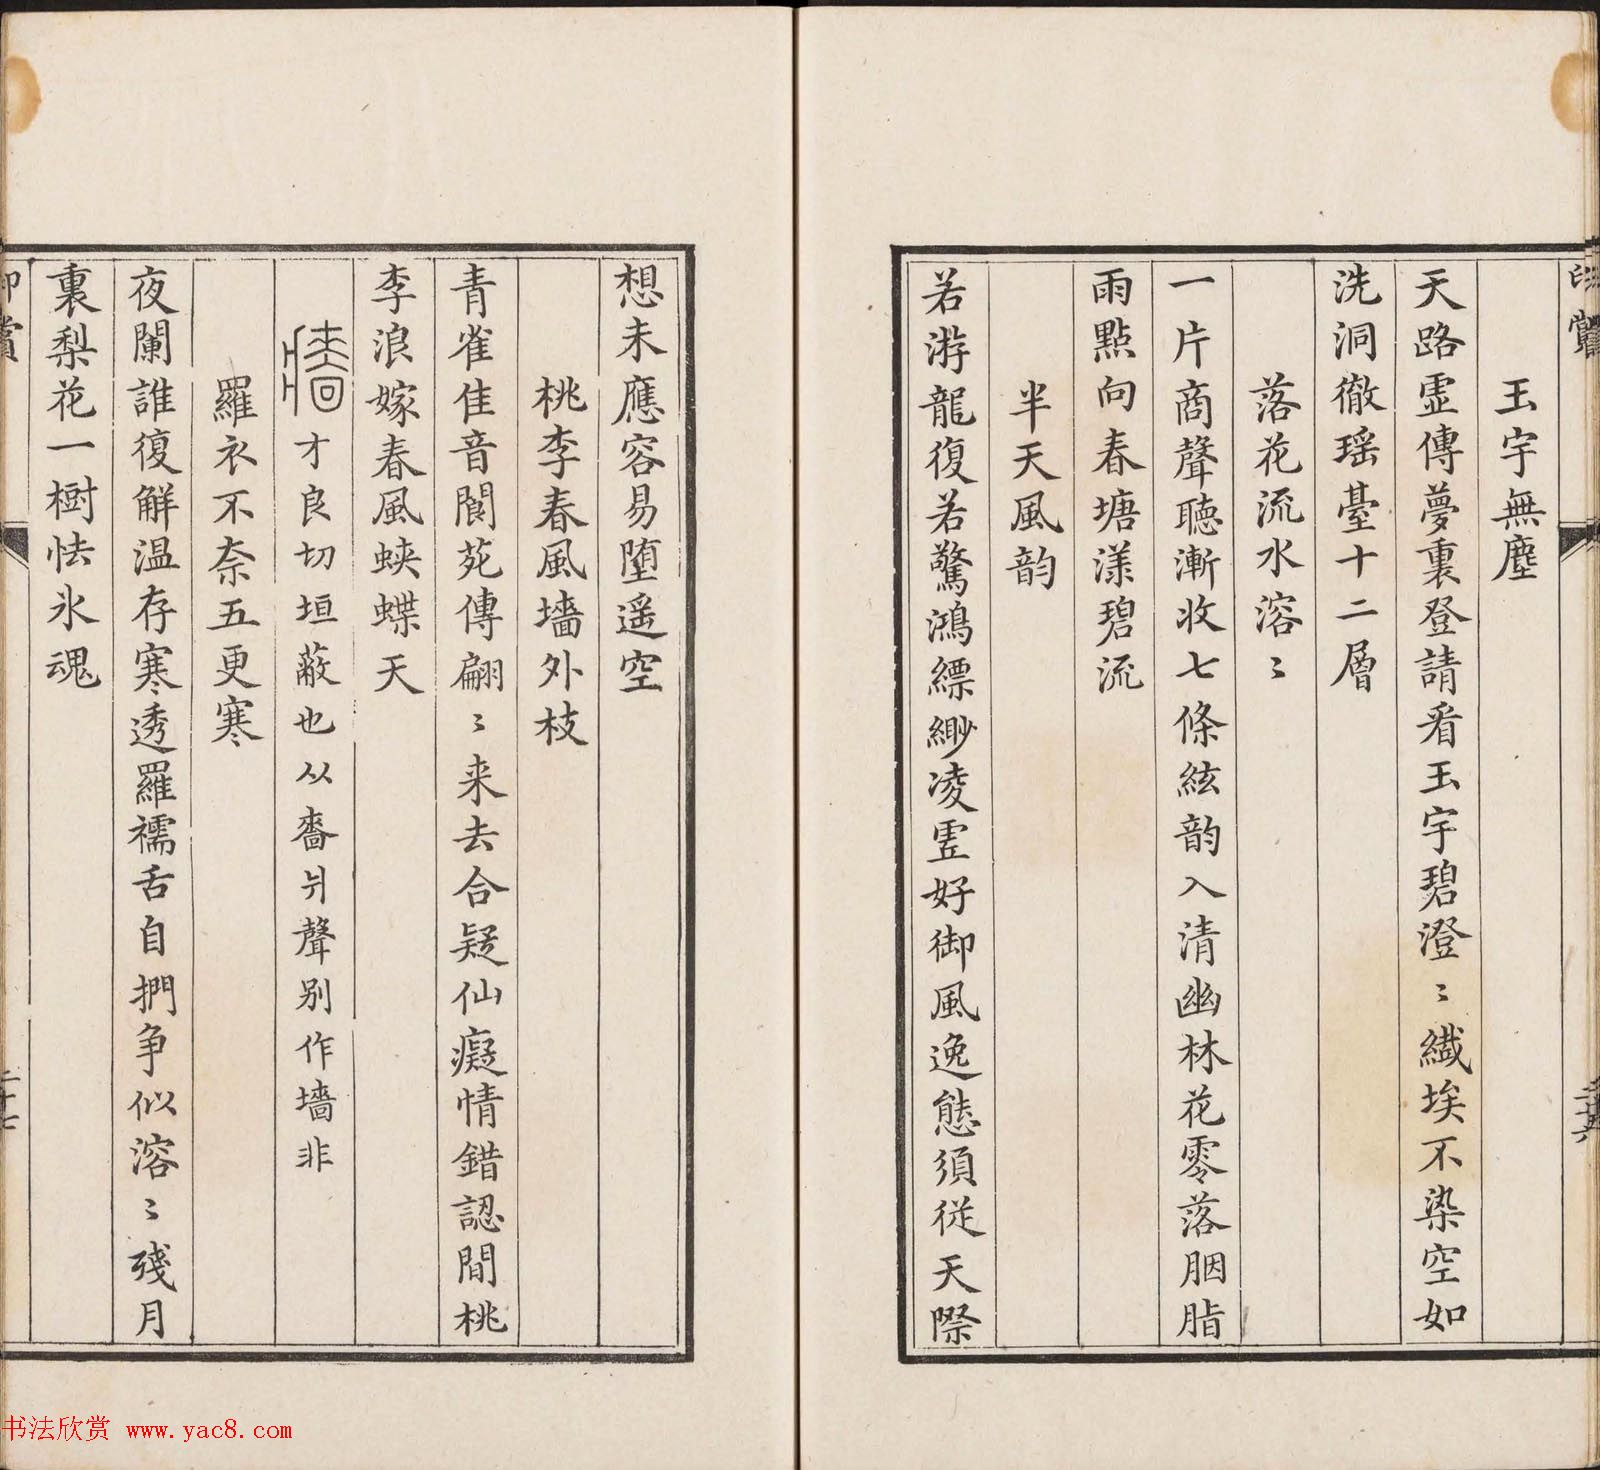 玉宇無塵
天路虛傳夢裏登請看玉宇碧澄〻纖埃不染空如
洗洞徹瑶臺十二層
落花流水溶〻
一片商聲聽漸收七條絃韵入清幽林花零落胭脂
雨點向春塘漾碧流
半天風韵
若游龍復若驚鴻縹緲凌虛好御風逸態須従天際
想未應容易墮遥空
桃李春風墻外枝
青雀佳音閬苑傳翩〻来去合疑仙癡情錯認間桃
李浪嫁春風蛺蝶天
牆才良切垣蔽也从嗇爿聲别作墻非
羅衣不奈五更寒
夜闌誰復解温存寒透羅襦舌自捫争似溶〻殘月
裏梨花一樹怯氷魂
二十七
书法欣赏 www.yac8.com